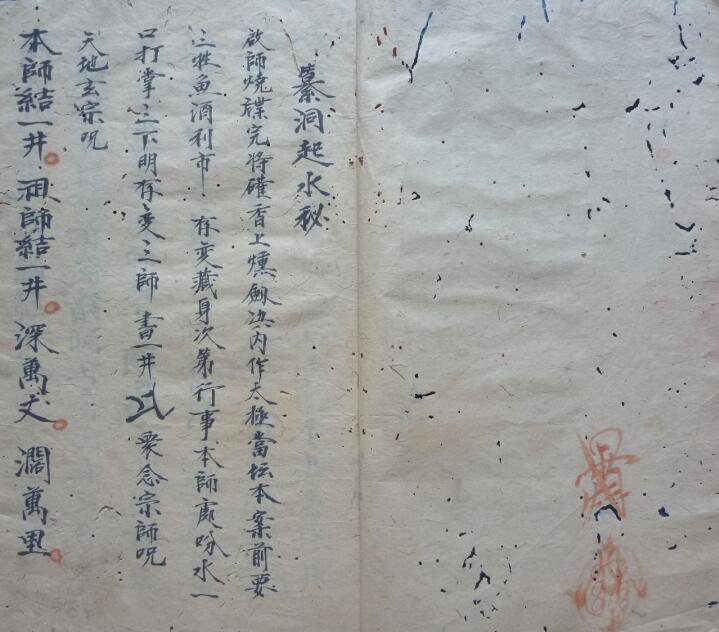 橐洞起水秘
啟師燒牒完將礶香上燻劍決內作太極當坛本案前要
三牲魚酒利市 存变藏身次第行事本師處吩水一
口打掌三下明存变三師 書一井 衆念宗師呪
天地玄宗呪
本師結一井。祖師結一井。深萬丈。濶萬里。